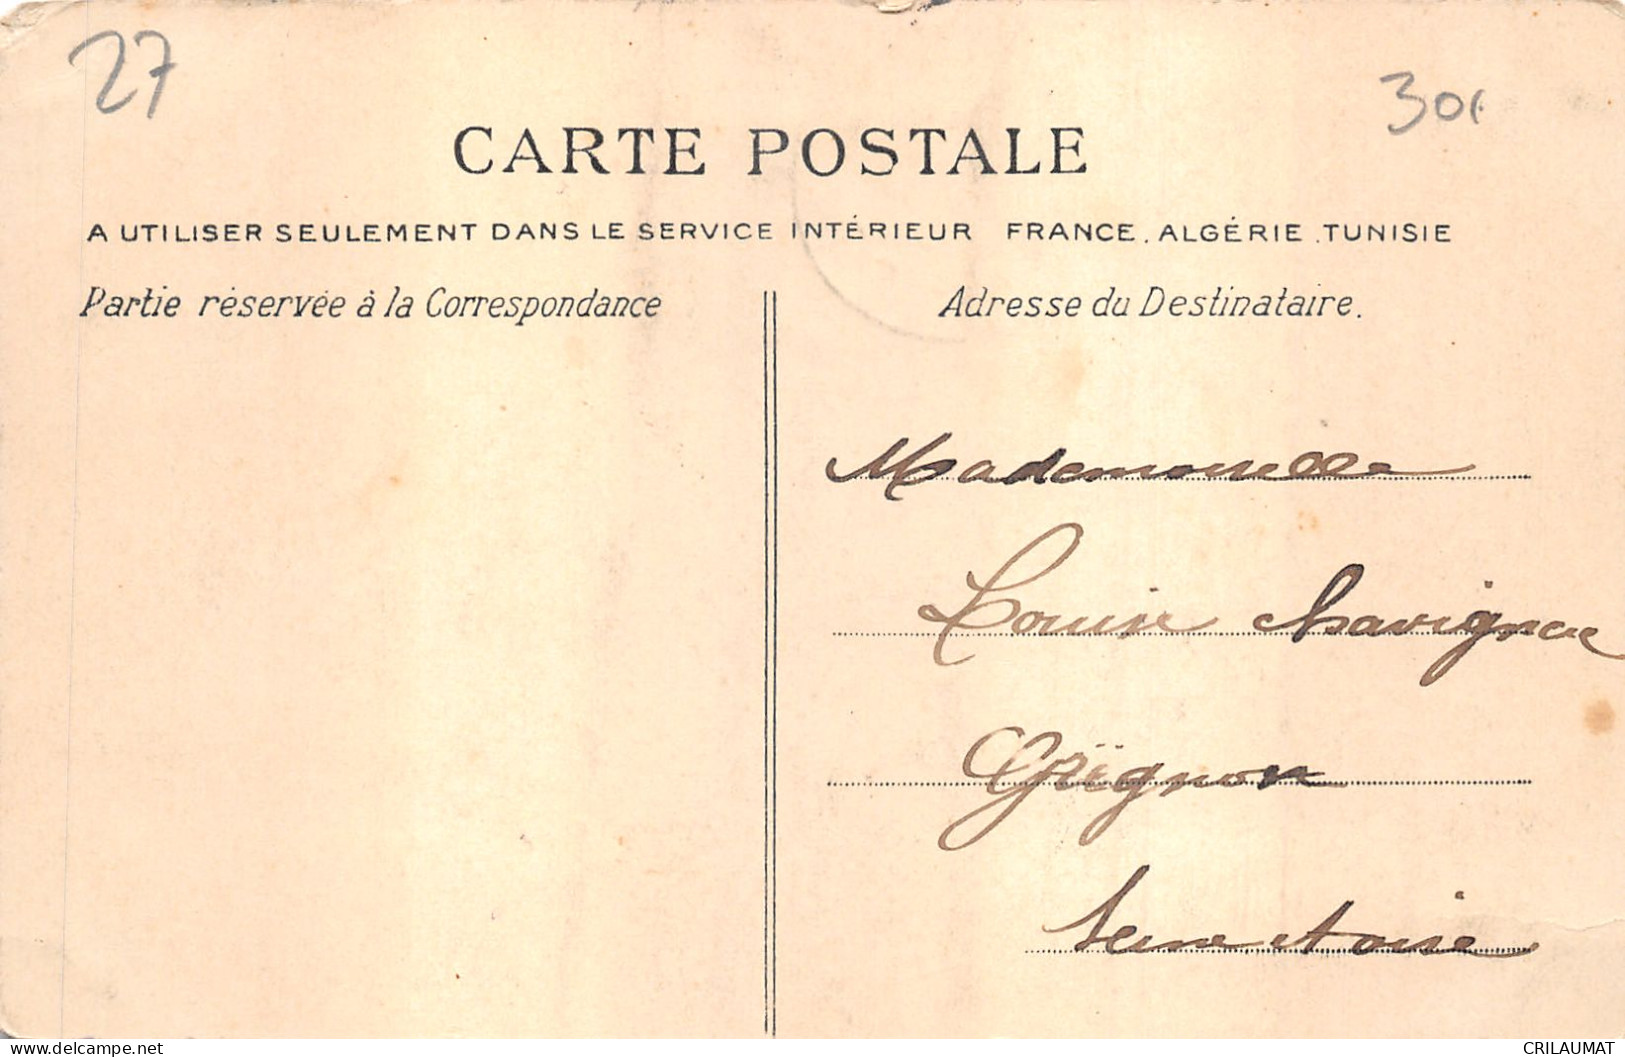 27
30f
CARTE POSTALE
A UTILISER SEULEMENT DANS LE SERVICE INTÉRIEUR FRANCE. ALGÉRIE .TUNISIE
Partie réservée à la Correspondance
Adresse du Destinataire.
Mademoiselle
Louise Chavignac
Grignon
Seine et Oise
delcampe.net
CRILAUMAT